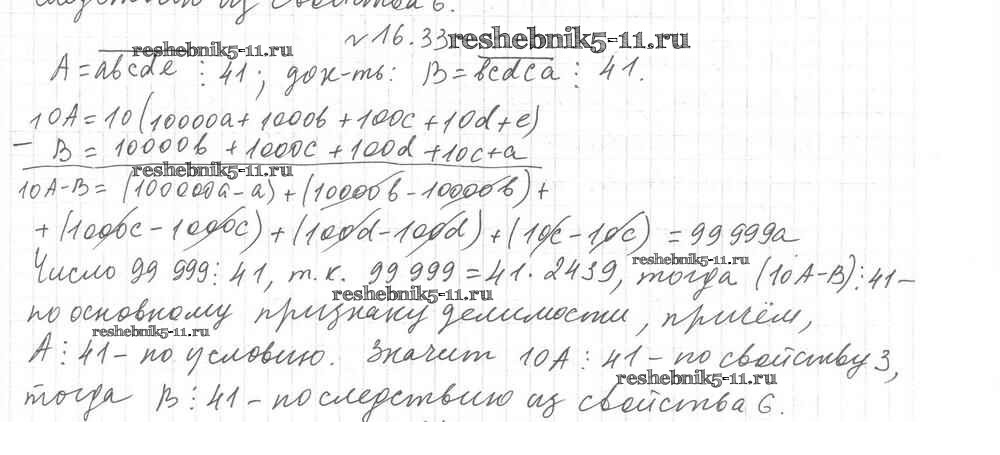 следствию из свойства 6.
№16.33 reshebnik5-11.ru
reshebnik5-11.ru
A = abcde ⋮ 41; док-ть: B = bcdca ⋮ 41.
10A = 10(10000a + 1000b + 100c + 10d + e)
− B = 10000b + 1000c + 100d + 10c + a
reshebnik5-11.ru
10A-B = (100000a - a) + (10000b - 10000b) +
+ (1000c - 1000c) + (100d - 100d) + (10c - 10c) = 99999a
reshebnik5-11.ru
Число 99 999 ⋮ 41, т.к. 99 999 = 41 · 2439, тогда (10A-B) ⋮ 41 –
reshebnik5-11.ru
по основному признаку делимости, причём,
reshebnik5-11.ru
A ⋮ 41 – по условию. Значит 10A ⋮ 41 – по свойству 3,
reshebnik5-11.ru
тогда B ⋮ 41 – по следствию из свойства 6.